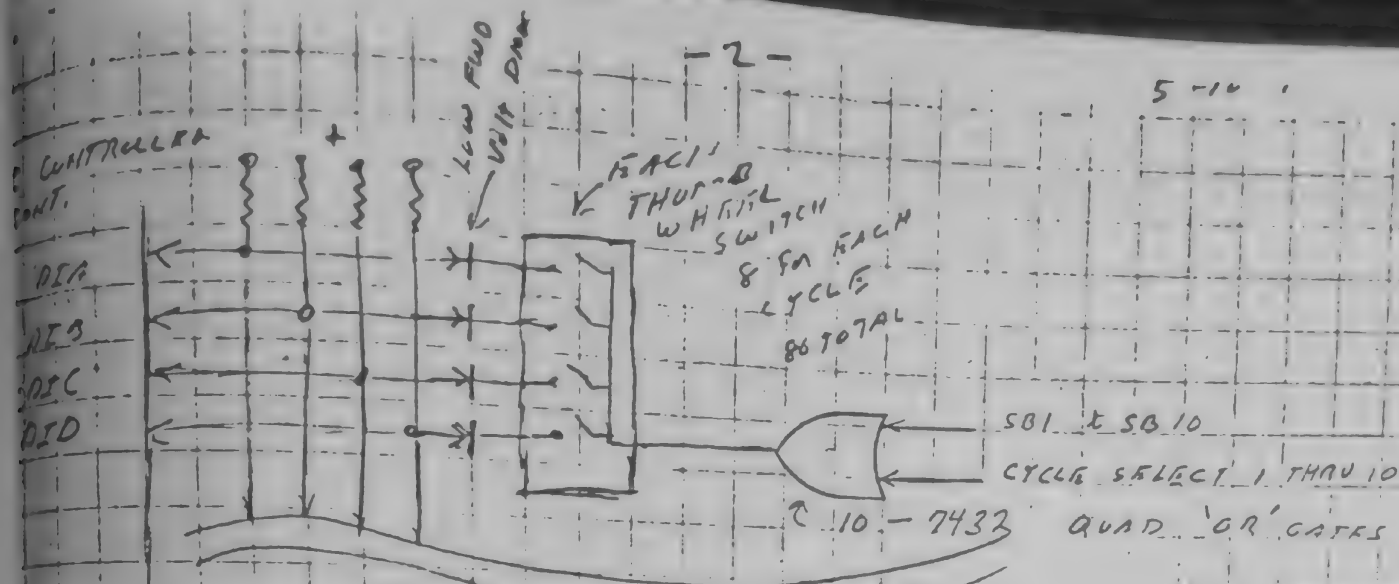 - 2 -
5 -10
CONTROLLER
CONT.
+
LOW FWD
VOLT DROP
EACH
THUMB
WHEEL
SWITCH
8 FOR EACH
CYCLE
80 TOTAL
DIA
DIB
DIC
DID
SB1 t SB10
CYCLE SELECT 1 THRU 10
10 - 7432 QUAD 'OR' GATES